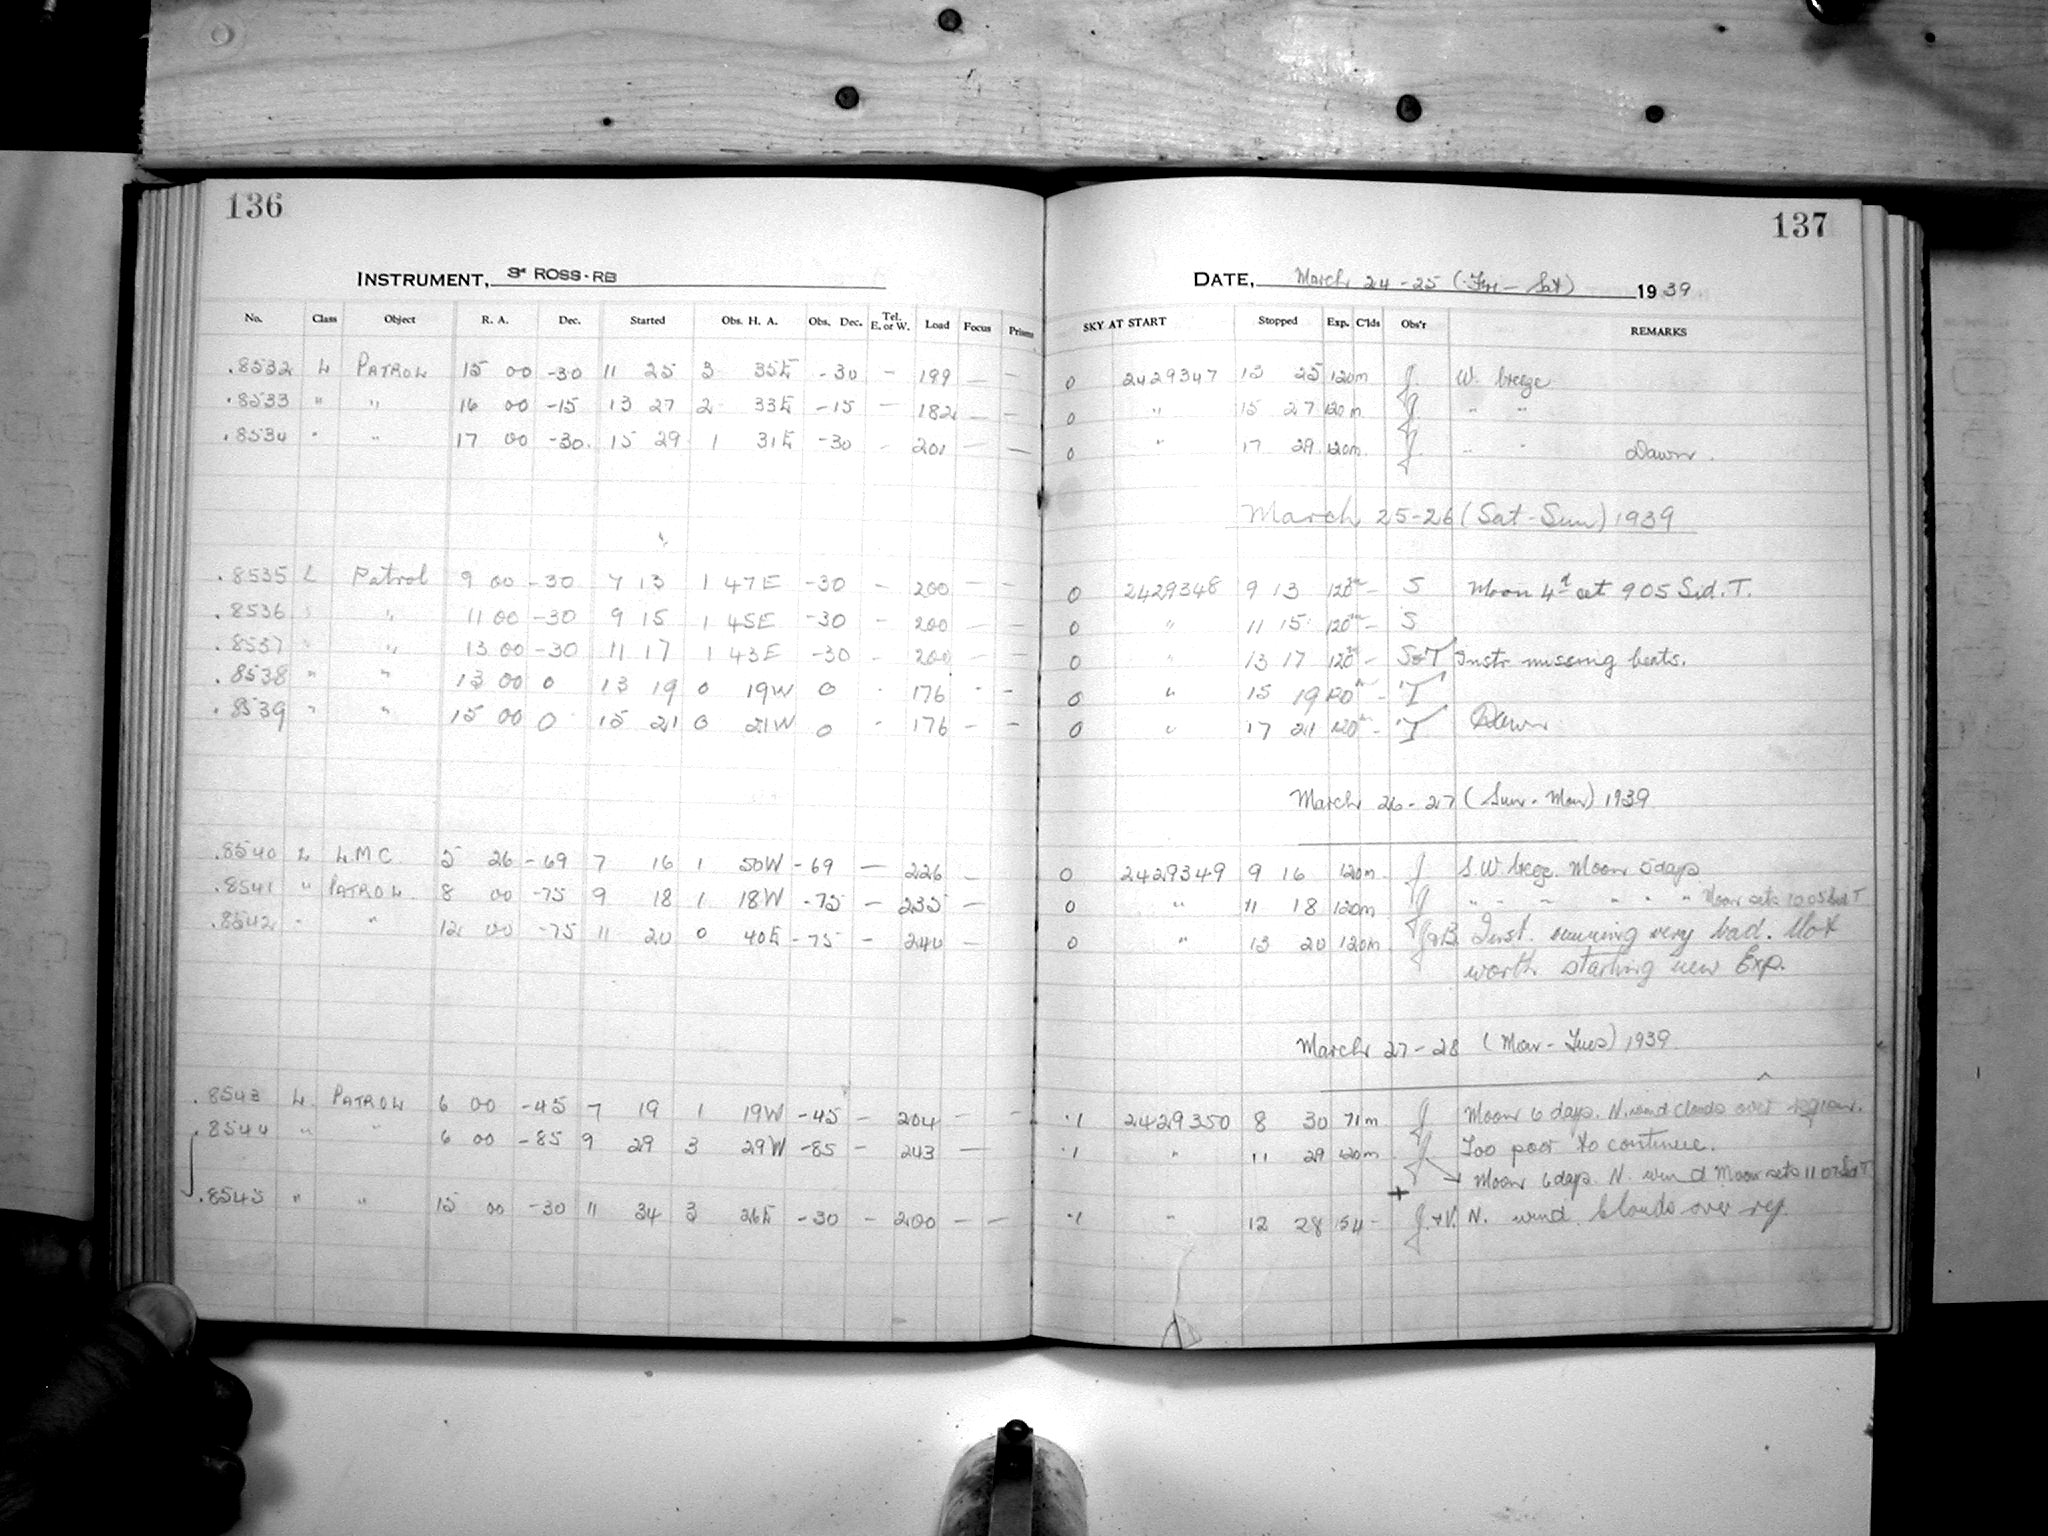 136
137
INSTRUMENT, 3" ROSS-RB
DATE, March 24-25 (Fri - Sat) 1939
No. Class Object R. A. Dec. Started Obs. H. A. Obs. Dec. Tel. E. or W. Load Focus Prisms SKY AT START Stopped Exp. C'lds Obs'r REMARKS
.8532 L PATROL 15 00 -30 11 25 3 35E -30 - 199 - - 0 2429347 13 25 120m J. W. breeze
.8533 " " 16 00 -15 13 27 2 33E -15 - 182 - - 0 " 15 27 120m J. " "
.8534 " " 17 00 -30. 15 29 1 31E -30 - 201 - - 0 " 17 29 120m. J. " " Dawn.
March 25-26 (Sat-Sun) 1939
.8535 L Patrol 9 00 -30 7 13 1 47E -30 - 200 - - 0 2429348 9 13 120m - S Moon 4d at 905 Sid. T.
.8536 " " 11 00 -30 9 15 1 45E -30 - 200 - - 0 " 11 15 120m - S
.8537 " " 13 00 -30 11 17 1 43E -30 - 200 - - 0 " 13 17 120m - S&T Instr missing beats.
.8538 " " 13 00 0 13 19 0 19W 0 - 176 - - 0 " 15 19 120m - T
.8539 " " 15 00 0 15 21 0 21W 0 - 176 - - 0 " 17 21 120m - T Dawn
March 26-27 (Sun-Mon) 1939
.8540 L LMC 5 26 -69 7 16 1 50W -69 - 226 - 0 2429349 9 16 120m J S.W breeze. Moon 5days
.8541 " PATROL. 8 00 -75 9 18 1 18W -75 - 235 - 0 " 11 18 120m J " " " " " " Moon sets 10 05 Sid T
.8542 " " 12 00 -75 11 20 0 40E -75 - 240 - 0 " 13 20 120m J&B Inst. running very bad. Not
worth starting new Exp.
March 27-28 (Mon-Tues) 1939
.8543 L. PATROL 6 00 -45 7 19 1 19W -45 - 204 - - .1 2429350 8 30 71m J Moon 6 days. N. wind clouds over region.
.8544 " " 6 00 -85 9 29 3 29W -85 - 243 - .1 " 11 29 120m J Too poor to continue.
Moon 6days. N. wind Moon sets 11 07 Sid T
.8545 " " 15 00 -30 11 34 3 26E -30 - 200 - - .1 " 12 28 54 - J.+V. N. wind. Clouds over reg.